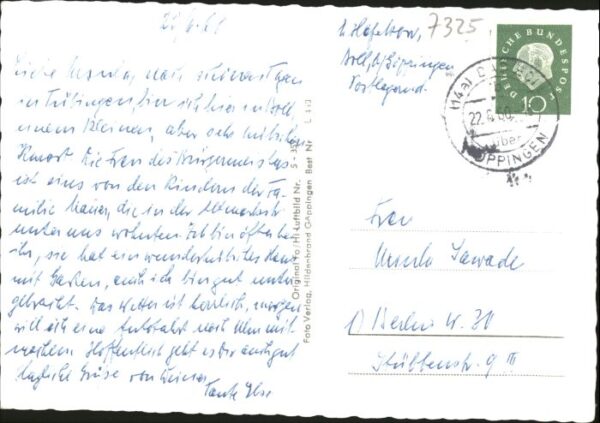 Liebe Ursula, nach schönen Tagen
in Tübingen bin ich hier in Boll
einem kleinen, aber sehr hübschen
Kurort. Die Frau des Bürgermeisters
ist eines von den Kindern der Fa-
milie Maier, die in der
unter uns wohnten. Ich bin öfter bei
ihr, sie hat ein wunderhübsches Haus
mit Garten, auch ich bin gut unter
gebracht. Das Wetter ist herrlich, morgen
will ich eine Autofahrt nach Ulm mit
machen. Hoffentlich geht es Dir auch gut
Herzliche Grüße von Deiner
Tante Ilse
Original Foto: Hi Luftbild Nr.
Foto Verlag, Hildenbrand Göppingen Best. Nr.
7325
Boll b/ Göppingen
Postlagernd.
DEUTSCHE BUNDESPOST
10
(14a)
22.6.60.
über
GÖPPINGEN
Frau
Ursula Sawade
1) Berlin W. 30
Stübbenstr. 9 III